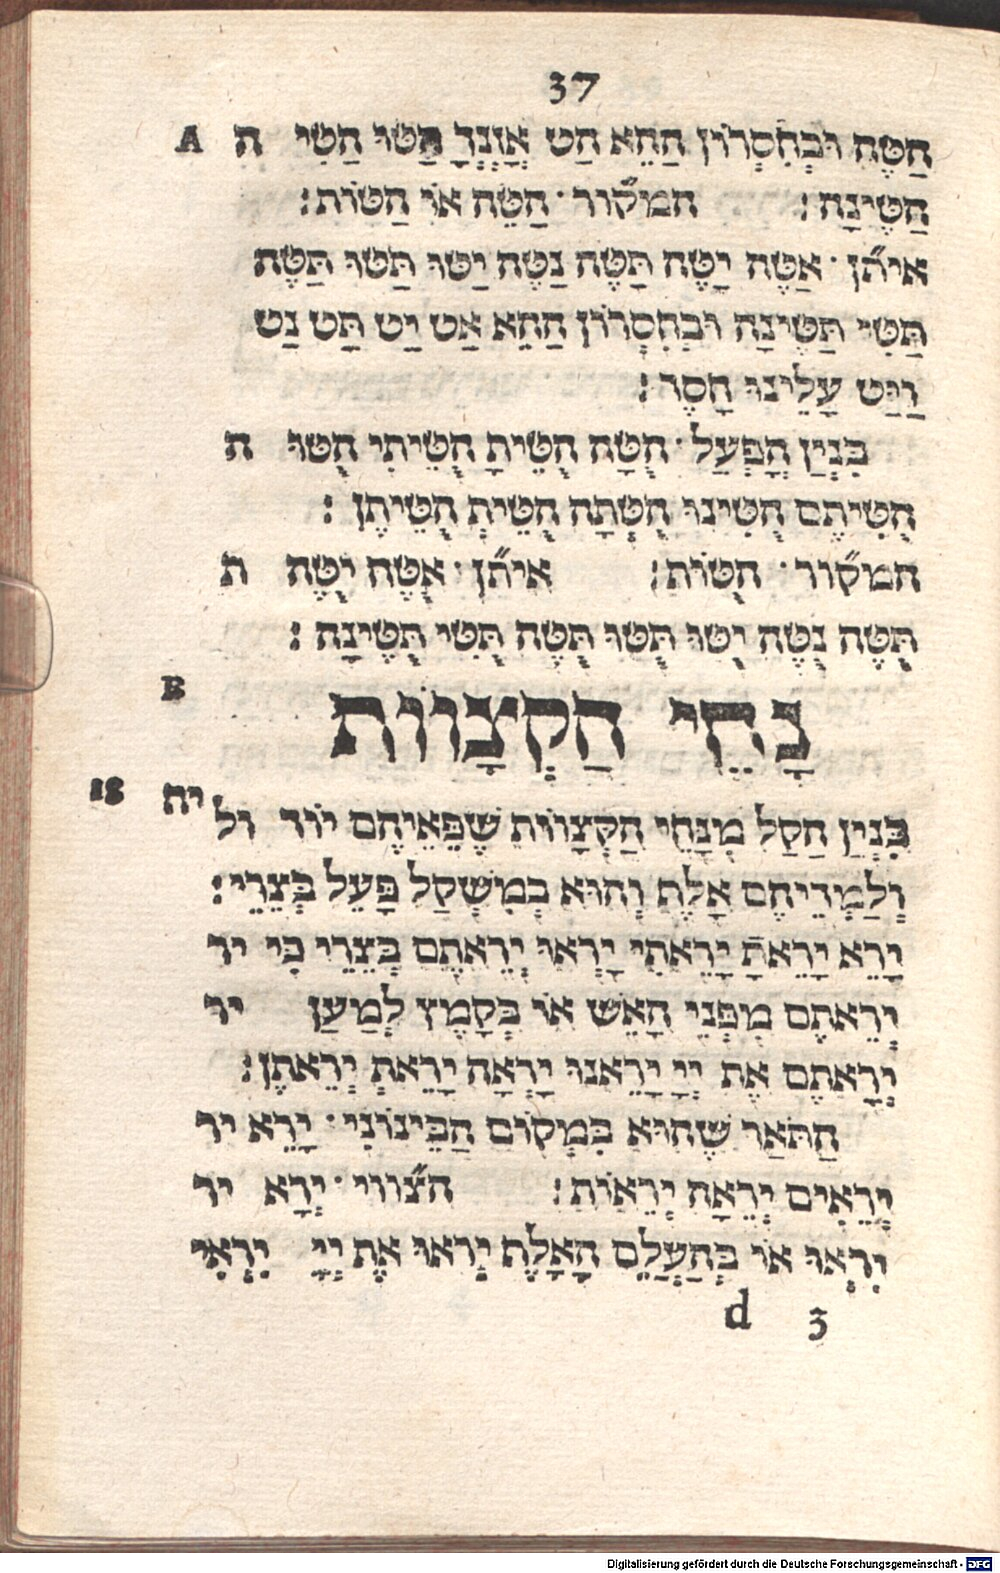 37
A הַטֵּה וּבְחֶסְרוֹן הַהֵא הַט אָזְנְךָ הַטּוּ הַטִּי ה
הַטֶּינָה: המק״ור· הַטֵּה אוֹ הַטּוֹת:
אית״ן· אַטֶּה יַטֶּה תַּטֶּה נַטֶּה יַטּוּ תַּטּוּ תַּטֶּה
תַּטִּי תַּטֶּינָה וּבְחֶסְרוֹן הַהֵא אַט יַט תַּט נַט
וַיַּט עָלֵינוּ חָסֶד:
בִּנְיַן הָפְעַל· הֻטָּה הֻטֵּיתָ הֻטֵּיתִי הֻטּוּ ה
הֻטֵּיתֶם הֻטֵּינוּ הֻטְּתָה הֻטֵּית הֻטֵּיתֶן:
המק״ור· הֻטּוֹת: אית״ן· אֻטֶּה יֻטֶּה ת
תֻּטֶּה נֻטֶּה יֻטּוּ תֻּטּוּ תֻּטֶּה תֻּטִּי תֻּטֶּינָה:
B
נָחֵי הַקְצָווֹת
18 יח
בִּנְיַן הַקַל מִנָּחֵי הַקְצָווֹת שֶׁפֵּאֵיהֶם יוֹד ול
וְלַמְדֵיהֶם אָלֶף וְהוּא בְמִשְׁקַל פָּעֵל בְּצֵרֵי:
יָרֵא יָרֵאתָ יָרֵאתִי יָרְאוּ יְרֵאתֶם בְּצֵרֵי כִּי יר
יְרֵאתֶם מִפְּנֵי הָאֵשׁ אוֹ בְּקָמֶץ לְמַעַן יר
יְרָאתֶם אֶת יְיָ יָרֵאנוּ יָרְאָה יָרֵאת יְרֵאתֶן:
הַתֹּאַר שֶׁהוּא בִּמְקוֹם הַבֵּינוֹנִי· יָרֵא יר
יְרֵאִים יְרֵאָה יְרֵאוֹת: הצ״ווי· יְרָא יר
יִרְאוּ אוֹ בְּהַעְלֵם הָאָלֶף יְראוּ אֶת יְיָ יִרְאִי
d 3
Digitalisierung gefördert durch die Deutsche Forschungsgemeinschaft - DFG